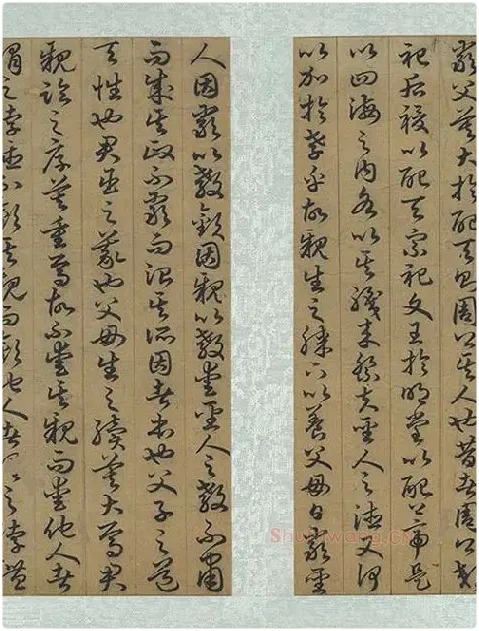 嚴父莫大於配天則周公其人也昔者周公郊
祀后稷以配天宗祀文王於明堂以配上帝是
以四海之內各以其職來祭夫聖人之德又何
以加於孝乎故親生之膝下以養父母日嚴聖
人因嚴以教敬因親以教愛聖人之教不肅
而成其政不嚴而治其所因者本也父子之道
天性也君臣之義也父母生之續莫大焉君
親臨之厚莫重焉故不愛其親而愛他人者
謂之孛德不敬其親而敬他人者謂之孛禮